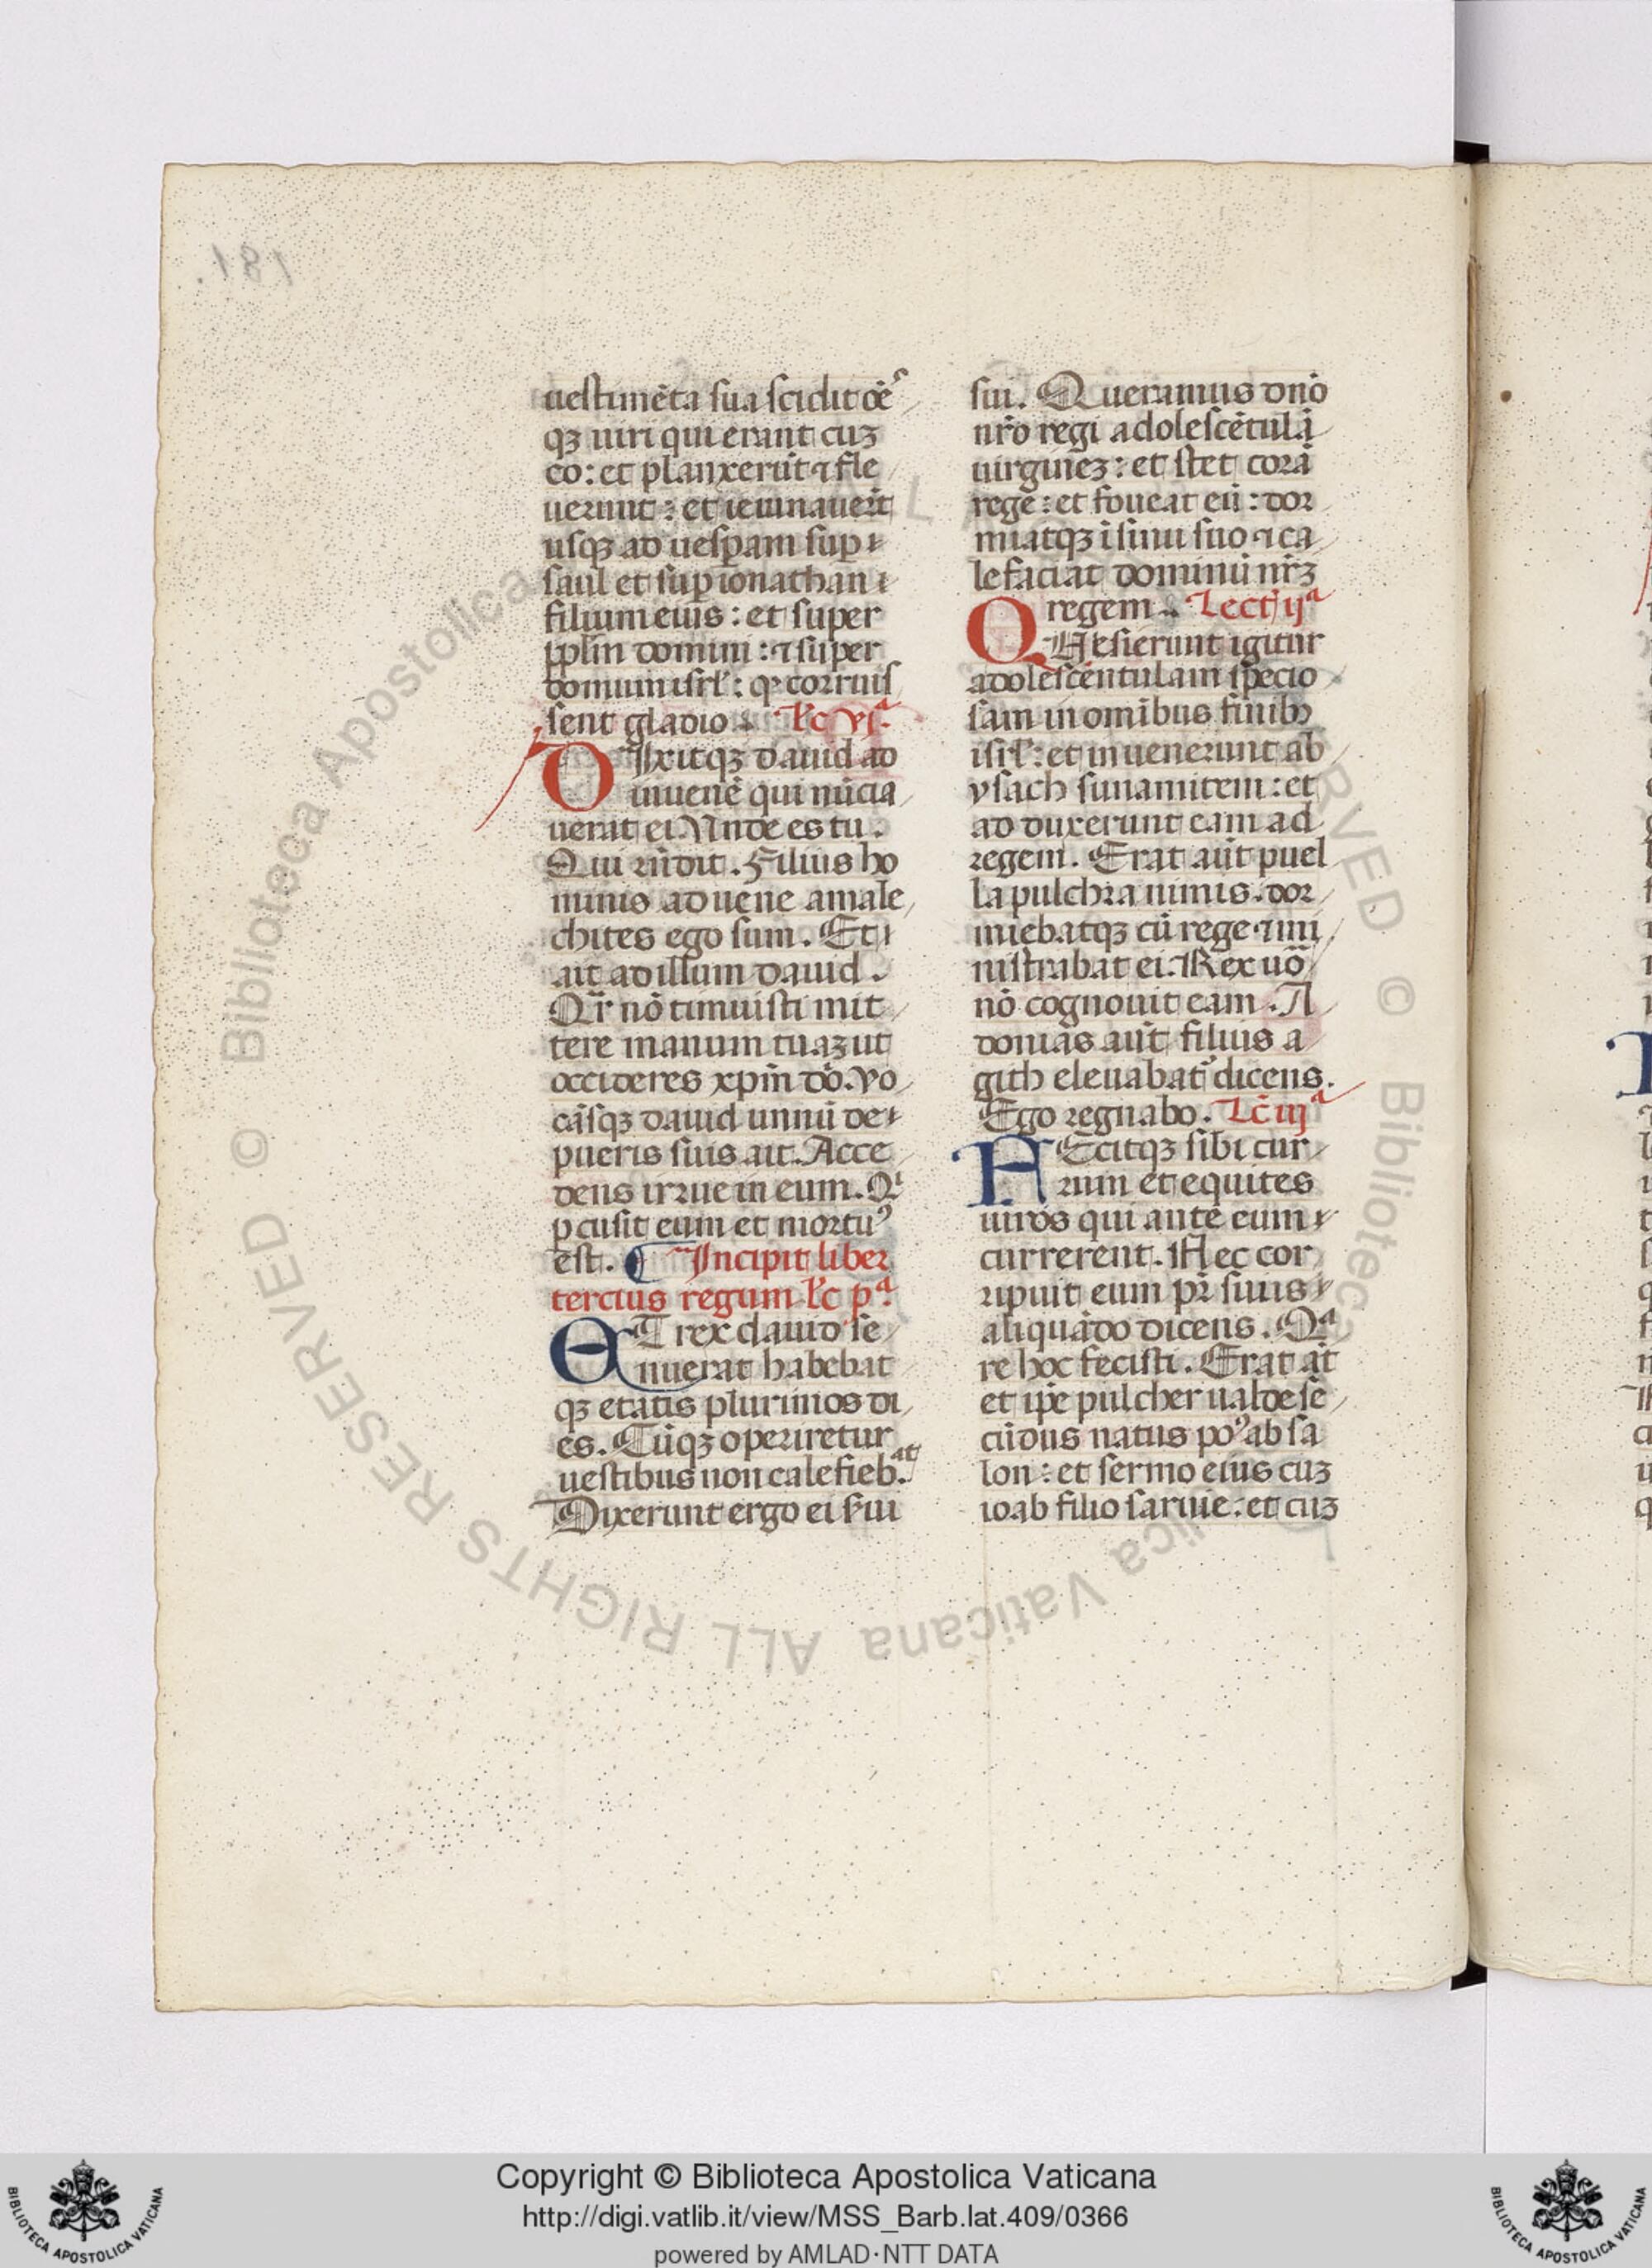 uestimēta sua scidit oēˢ
qꝫ uiri qui erant cuꝫ
eo: et planxerūt ⁊ fle
uerunt: et ieiunauert̄
usqꝫ ad uesꝑam sup
saul et suꝑ ionathan
filium eius: et super
pplm̄ domini: ⁊ super
domum isrl̄: ꝙ corruis
sent gladio. Lc̄ vjᵃ.
DIxitqꝫ dauid ad
iuuenē qui nūcia
uerat ei. Unde es tu.
Qui rn̄dit. Filius ho
minis aduene amale
chites ego sum. Et
ait ad illum dauid.
Qr̄ nō timuisti mit
tere manum tuaꝫ ut
occideres xpm̄ dō. vo
cāsqꝫ dauid unnū de
pueris suis ait. Acce
dens irrue in eum. Qⁱ
ꝑcusit eum et mortuꝰ
est. ¶ Incipit liber
tercius regum lc̄ pᵃ.
ET rex dauid se
nuerat habebat
qꝫ etatis plurimos di
es. Cūqꝫ operiretur
uestibus non calefieb.ᵃᵗ
Dixerunt ergo ei s̄ui
sui. Queramus dn̄o
nr̄o regi adolescētulā
uirgineꝫ: et stet corā
rege: et foueat eū: dor
miatqꝫ ī sinu suo ⁊ ca
lefaciat dominū nr̄ꝫ
regem. Lect̄ ijᵃ
QUesierunt igitur
adolescentulam specio
sam in omibus finibꝫ
isrl̄: et inuenerunt ab
ysach sunamitem: et
ad duxerunt eam ad
regem. Erat aūt puel
la pulchra nimis. dor
miebatqꝫ cū rege ⁊ mi
nistrabat ei. Rex uō
nō cognouit eam. A
donias aūt filius a
gith eleuabat᷑ dicens.
Ego regnabo. Lc̄ iijᵃ
FEcitqꝫ sibi cur
rum et equites
uiros qui ante eum
currerent. Nec cor
ripuit eum pr̄ suus
aliquādo dicens. Qᵃ
re hoc fecisti. Erat āt
et ip̄e pulcher ualde sē
cūdus natus poꝰ absa
lon: et sermo eius cuꝫ
ioab filio saruie: et cuꝫ
181.
© Biblioteca Apostolica Vaticana ALL RIGHTS RESERVED
Copyright © Biblioteca Apostolica Vaticana
http://digi.vatlib.it/view/MSS_Barb.lat.409/0366
powered by AMLAD·NTT DATA
BIBLIOTECA APOSTOLICA VATICANA
BIBLIOTECA APOSTOLICA VATICANA